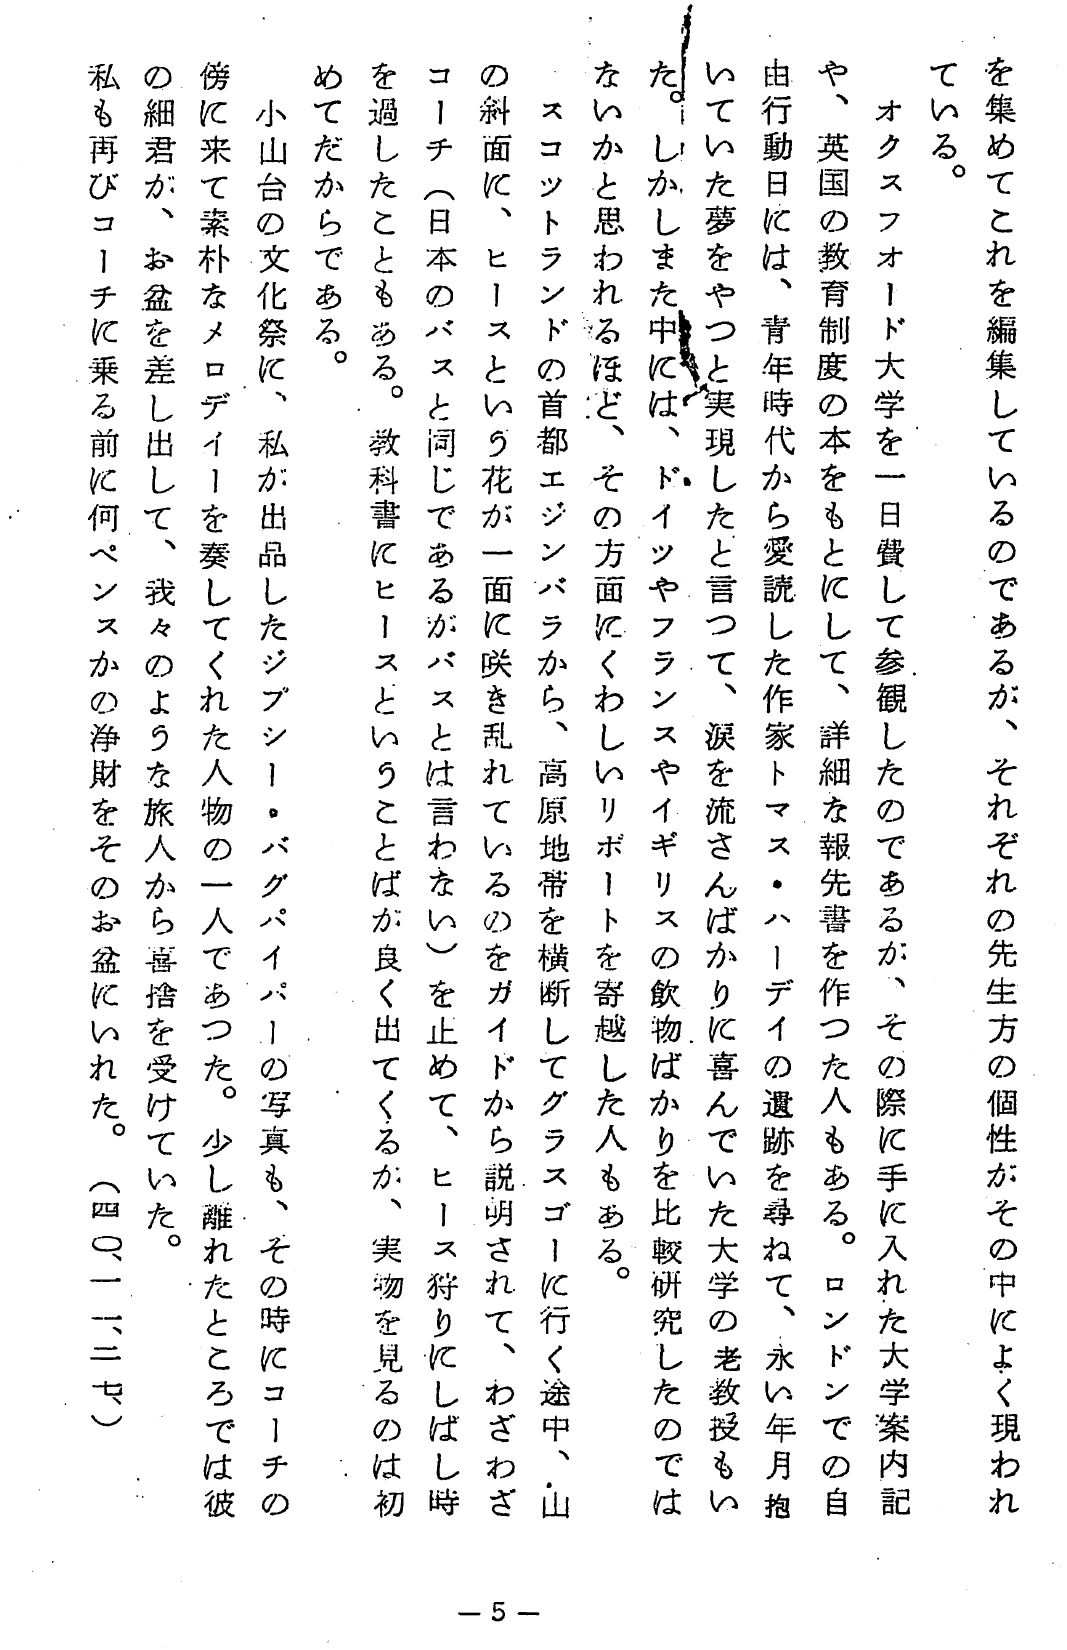 を集めてこれを編集しているのであるが、それぞれの先生方の個性がその中によく現われ
ている。
オクスフオード大学を一日費して参観したのであるが、その際に手に入れた大学案内記
や、英国の教育制度の本をもとにして、詳細な報先書を作つた人もある。ロンドンでの自
由行動日には、青年時代から愛読した作家トマス・ハーデイの遺跡を尋ねて、永い年月抱
いていた夢をやつと実現したと言つて、涙を流さんばかりに喜んでいた大学の老教授もい
た。しかしまた中には、ドイツやフランスやイギリスの飲物ばかりを比較研究したのでは
ないかと思われるほど、その方面にくわしいリポートを寄越した人もある。
スコットランドの首都エジンバラから、高原地帯を横断してグラスゴーに行く途中、山
の斜面に、ヒースという花が一面に咲き乱れているのをガイドから説明されて、わざわざ
コーチ（日本のバスと同じであるがバスとは言わない）を止めて、ヒース狩りにしばし時
を過したこともある。教科書にヒースということばが良く出てくるが、実物を見るのは初
めてだからである。
小山台の文化祭に、私が出品したジプシー・バグパイパーの写真も、その時にコーチの
傍に来て素朴なメロデイーを奏してくれた人物の一人であつた。少し離れたところでは彼
の細君が、お盆を差し出して、我々のような旅人から喜捨を受けていた。
私も再びコーチに乗る前に何ペンスかの浄財をそのお盆にいれた。（四〇、一一、二七、）
— 5 —